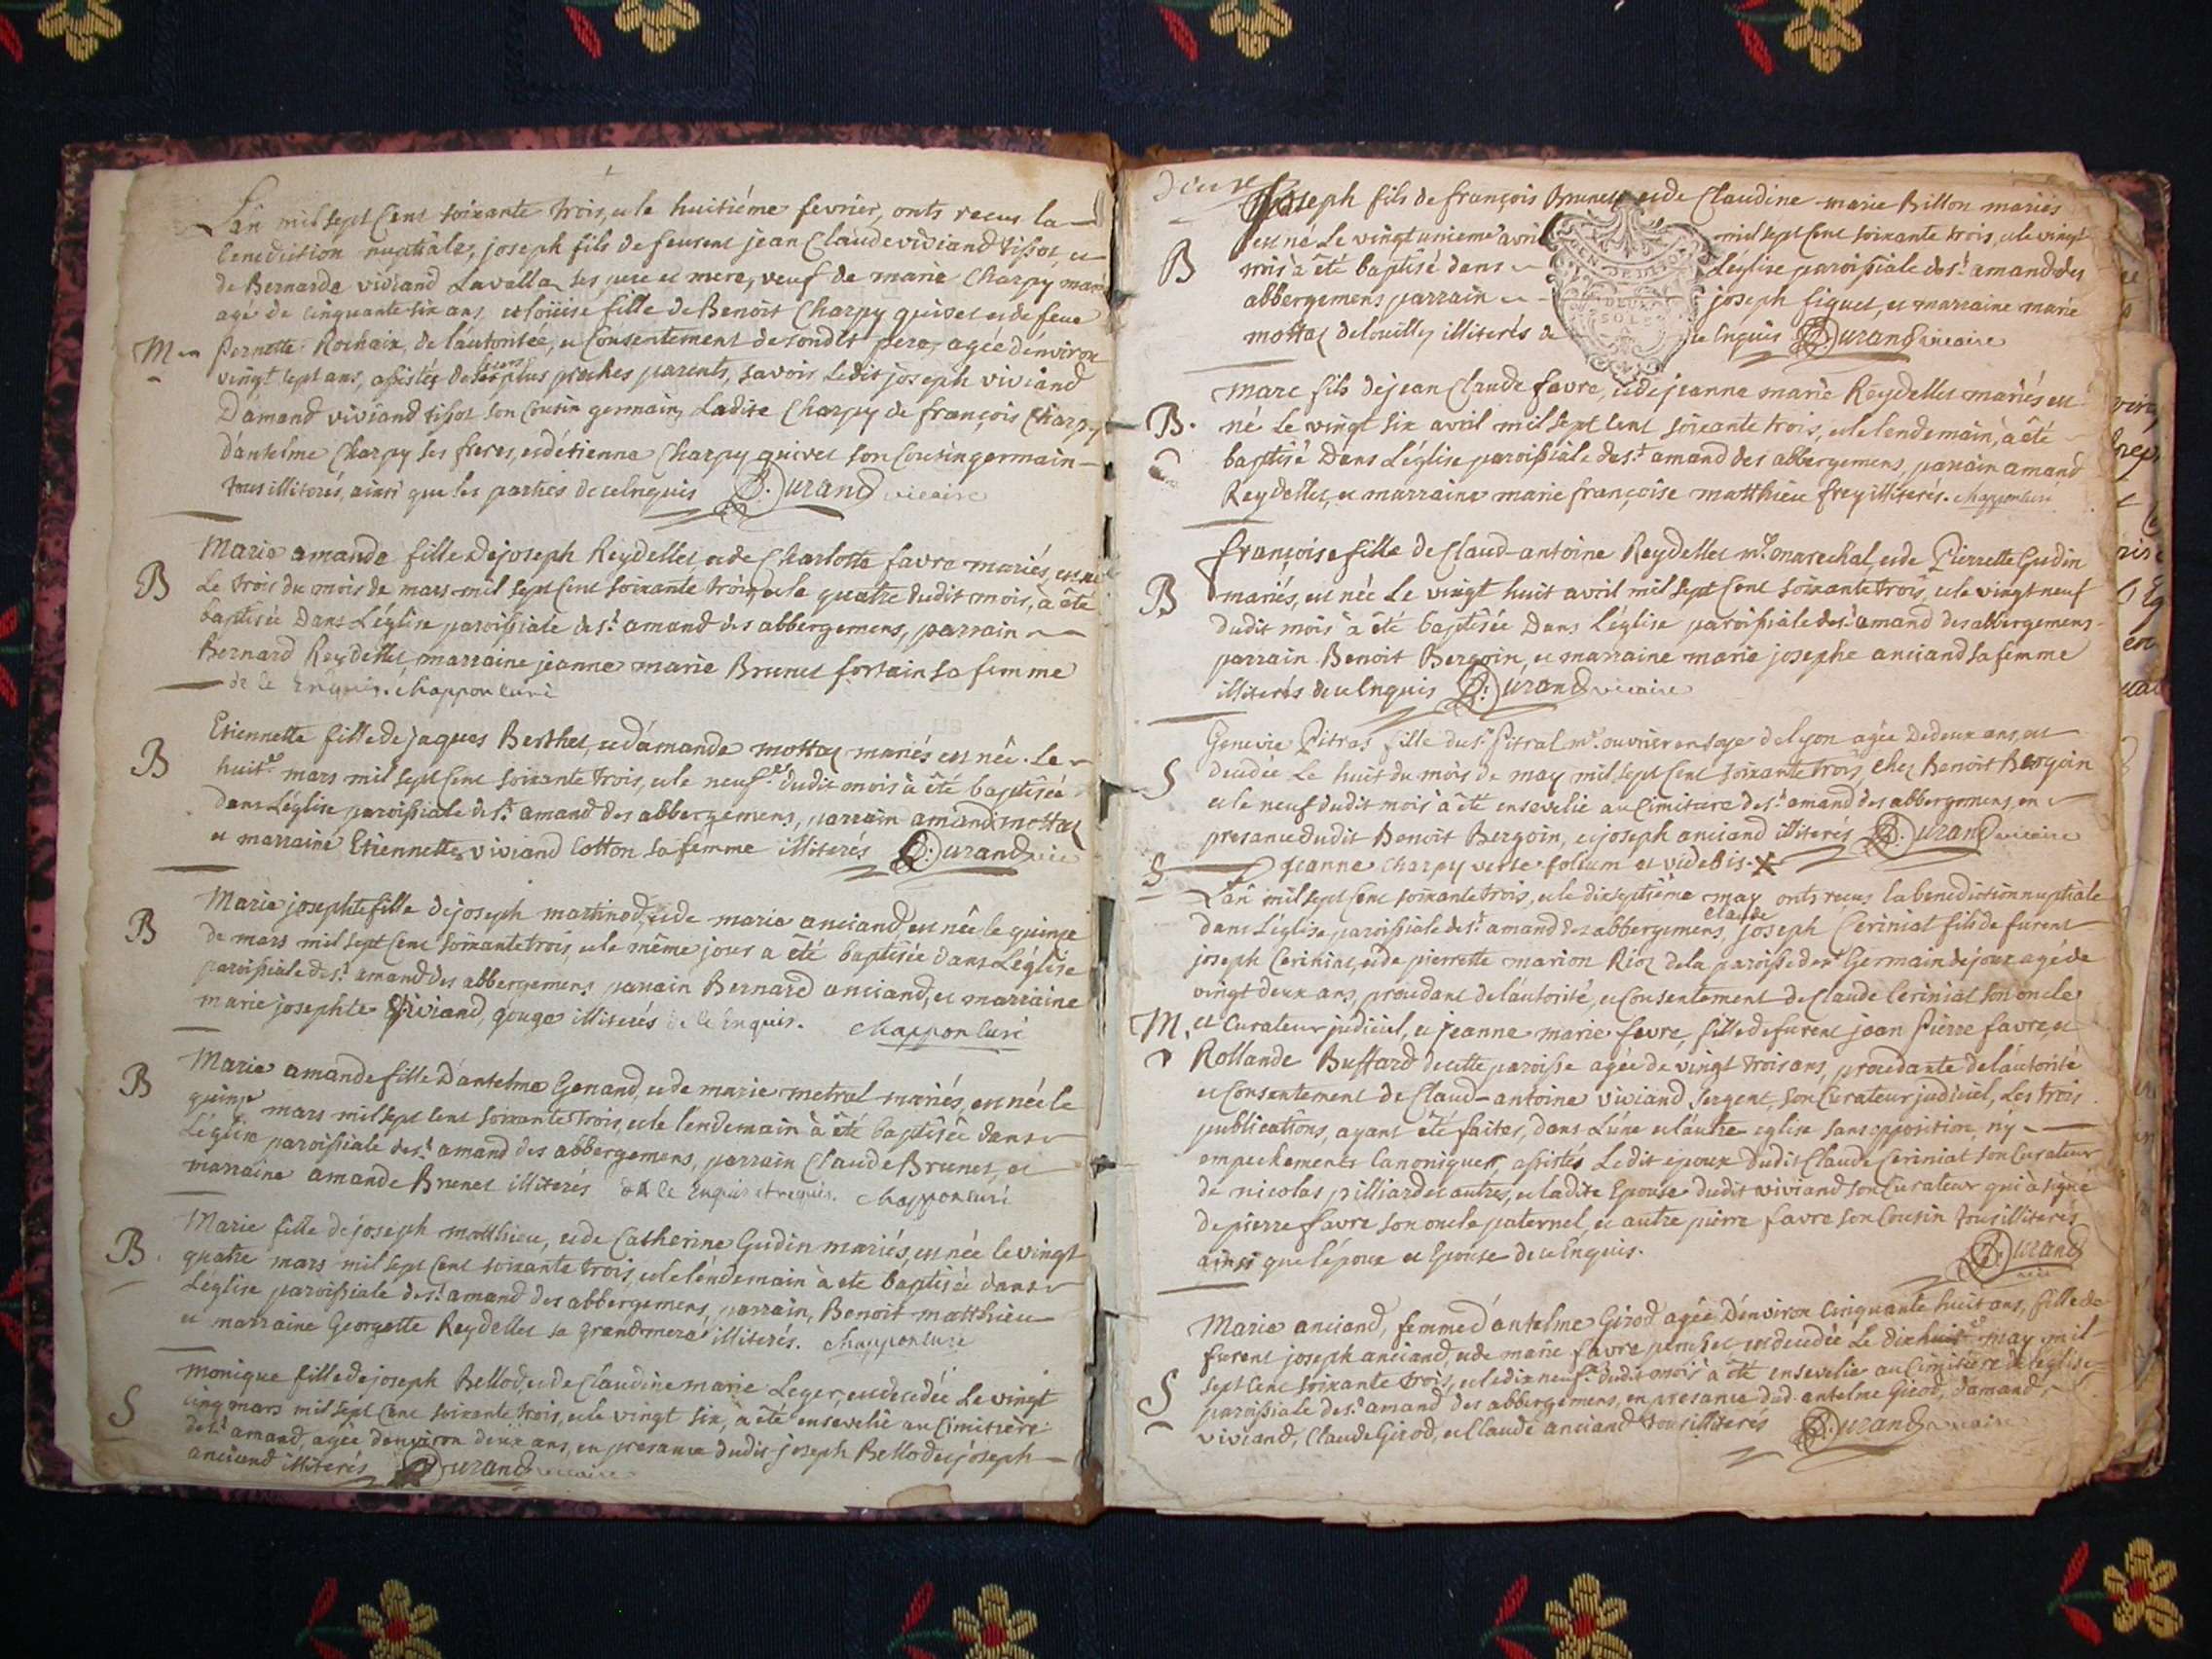 L'an mil sept Cent soixante trois, et le huitiéme fevrier, onts recus la
benediction nuptiale, joseph fils de feurent jean Claude viviand tissot, et
de Bernarde viviand Lavalla ses pere et mere, veuf de marie Charpy
agé de cinquante six ans, et loüise fille de Benoit Charpy quivet et de feue
M Pernette Rochaix, de l'autoritée, et Consentement de sondit pere, agée d'environ
vingt sept ans, assistés de leurs plus proches parents, savoir Ledit joseph viviand
D'amand viviand tissot son Cousin germain, Ladite Charpy de françois Charpy
d'antelme Charpy ses freres, et d'étienne Charpy quivet son Cousin germain
tous illiterés, ainsi que les parties de ce enquis Durand vicaire
Marie amande fille De joseph Reydellet, et de Charlotte favre mariés, est née
B Le trois du mois de mars mil sept Cent soixante trois, et le quatre dudit mois, à été
baptisée Dans L'église paroissiale de st amand des abbergemens, parrain
Bernard Reydellet marraine jeanne marie Brunet fortain sa femme
de ce Enquis. Chappon curé
Etiennette fille de jaques Berthet, et d'amande mottaz mariés est née. Le
B huite mars mil sept Cent soixante trois, et le neufe dudit mois à été baptisée
dans L'église paroissiale de st amand des abbergemens, parrain amand mottaz
et marraine Etiennette viviand Cotton sa femme illiterés Durand vic
Marie josephte fille de joseph martinod, et de marie anciand, est née le quinze
B de mars mil sept Cent soixante trois, et le même jour a été baptisée dans L'église
paroissiale de st amand des abbergemens parrain Bernard anciand, et marraine
marie josephte viviand, gouge illiterés de ce Enquis. Chappon curé
Marie amande fille D'antelme Genand, et de marie metral mariés, est née le
B quinze mars mil sept Cent soixante trois, et le lendemain à été baptisée dans
L'église paroissiale de st amand des abbergemens, parrain Claude Brunet, et
marraine amande Brunet illiterés de ce Enquis et requis. Chappon curé
Marie fille de joseph matthieu, et de Catherine Gudin mariés, est née le vingt
B. quatre mars mil sept Cent soixante trois, et le lendemain à eté baptisée dans
L'eglise paroissiale de st amand des abbergemens, parrain, Benoit matthieu
et marraine Georgette Reydellet sa grandmere illiterés. Chappon curé
Monique fille de joseph Bellod, et de Claudine marie Leger, est decedée Le vingt
S cinq mars mil sept Cent soixante trois, et le vingt six, à été ensevelie au Cimitière
de st amand, agée d'environ deux ans, en presance dudit joseph Bellod et joseph
anciand illiterés Durand vicaire
Joseph fils de françois Brunet et de Claudine marie Billon mariés
est né Le vingt unieme avril mil sept Cent soixante trois, et le vingt
B trois à été baptisé dans L'église paroissiale de st amand des
abbergemens parrain joseph figuet, et marraine marie
mottaz delouilly illiterés de ce Enquis Durand vicaire
Marc fils de jean Claude favre, et de jeanne marie Reydellet mariés est
B. né Le vingt six avril mil sept Cent soixante trois, et le lendemain, à été
baptisé Dans L'église paroissiale de st amand des abbergemens, parrain amand
Reydellet, et marraine marie françoise matthieu frey illiterés. Chappon curé
françoise fille de Claud-antoine Reydellet me marechal, et de Pierrette Gudin
B mariés, est née Le vingt huit avril mil sept Cent soixante trois, et le vingt neuf
dudit mois à été baptisée Dans L'église paroissiale de st amand des abbergemens
parrain Benoit Bergoin, et marraine marie josephe anciand sa femme
illiterés de ce Enquis Durand vicaire
Genevie Pitras fille du sr Pitral me ouvrier en soye de lyon agée De deux ans, est
S decedée Le huit du mois de may mil sept Cent soixante trois, chez Benoit Bergoin
et le neuf dudit mois à été ensevelie au Cimitiere de st amand des abbergemens, en
presance dudit Benoit Bergoin, et joseph anciand illiterés Durand vicaire
S jeanne Charpy verte folium et videbis.
L'an mil sept Cent soixante trois, et le dix septiéme may onts reçus la benediction nuptiale
claude
dans L'église paroissiale de st amand des abbergemens joseph Ceriniat fils de furent
joseph Ceriniat, et de pierrette marion Rioz de la paroisse de st Germain de joux agé de
vingt deux ans, procedant de l'autorité, et Consentement de Claude Ceriniat son oncle
M. et Curateur judiciel, et jeanne marie favre, fille de furent jean Pierre favre, et
Rollande Buffard de cette paroisse agée de vingt trois ans, procedante de l'autorité
et Consentement de Claud-antoine viviand sergent, son Curateur judiciel, Les trois
publications, ayant été faites, dans L'une et l'autre eglise sans opposition, n'y
empechements Canoniques, assistés Ledit époux dudit Claude Ceriniat son Curateur
de nicolas pilliard et autres, et ladite Epouse dudit viviand son Curateur qui à signé
de pierre favre son oncle paternel, et autre pierre favre son Cousin tous illiteres
ainsi que l'époux et Epouse de ce Enquis. Durand
vic
Marie anciand, femme d'antelme Girod agée D'environ Cinquante huit ans, fille de
furent joseph anciand, et de marie favre est decedée Le dix huite may mil
S sept Cent soixante trois, et le dix neufe dudit mois à été ensevelie au Cimitière de l'eglise
paroissiale de st amand des abbergemens, en presance dud. antelme Girod, d'amand
viviand, Claude Girod, et Claude anciand tous illiterés Durand vicaire